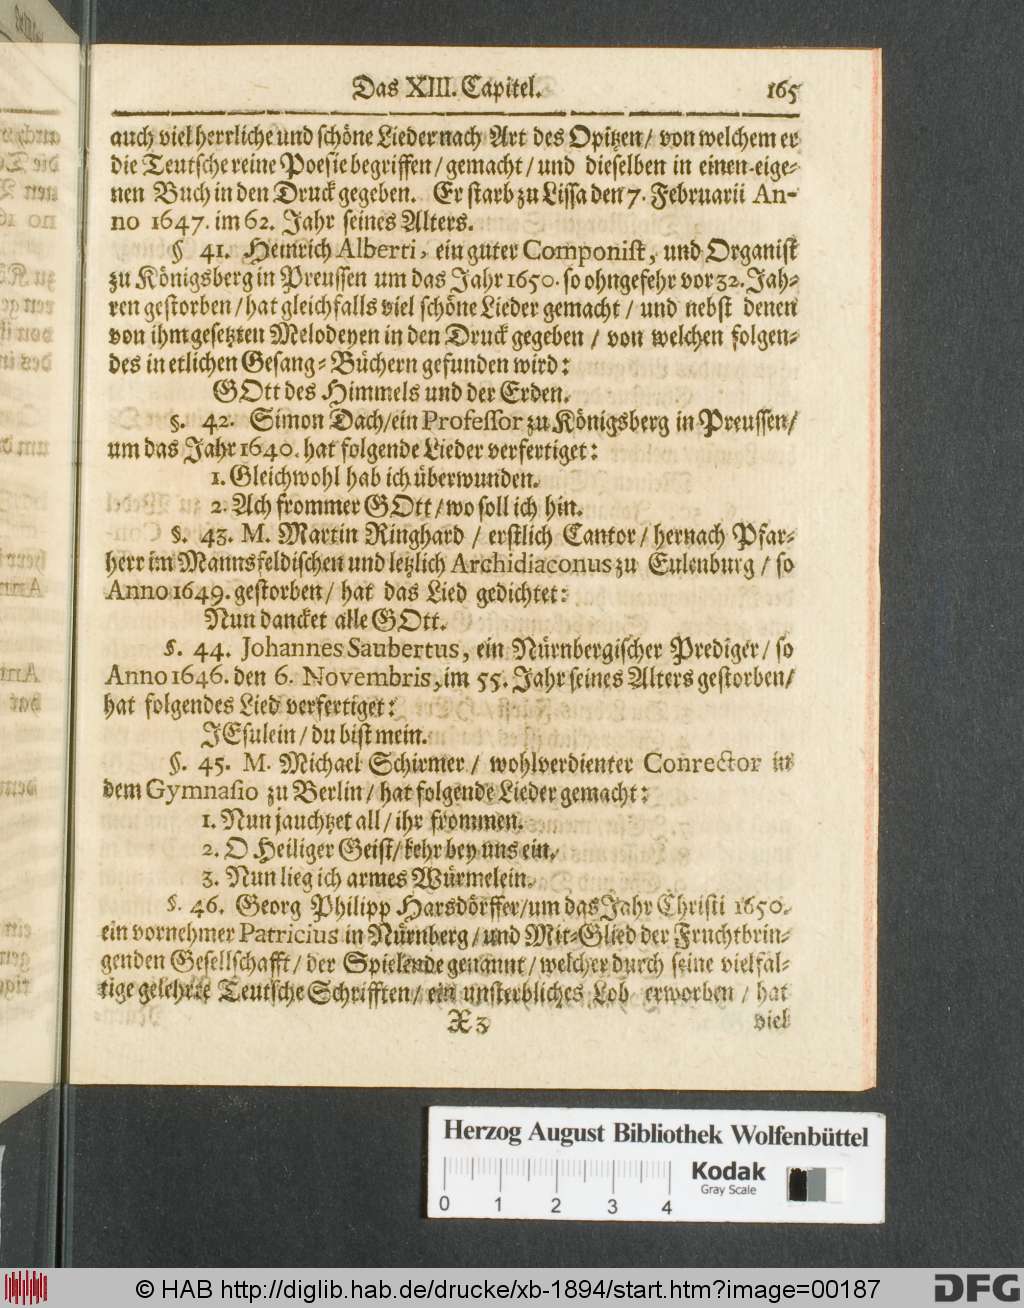 Das XIII. Capitel. 165
auch viel herrliche und schöne Lieder nach Art des Opitzen / von welchem er
die Teutsche reine Poesie begriffen / gemacht / und dieselben in einen eige-
nen Buch in den Druck gegeben. Er starb zu Lissa den 7. Februarii An-
no 1647. im 62. Jahr seines Alters.
§ 41. Heinrich Alberti, ein guter Componist, und Organist
zu Königsberg in Preussen um das Jahr 1650. so ohngefehr vor 32. Jah-
ren gestorben / hat gleichfalls viel schöne Lieder gemacht / und nebst denen
von ihm gesetzten Melodeyen in den Druck gegeben / von welchen folgen-
des in etlichen Gesang-Büchern gefunden wird:
GOtt des Himmels und der Erden.
§. 42. Simon Dach / ein Professor zu Königsberg in Preussen /
um das Jahr 1640. hat folgende Lieder verfertiget:
1. Gleichwohl hab ich überwunden.
2. Ach frommer GOtt / wo soll ich hin.
§. 43. M. Martin Ringhard / erstlich Cantor / hernach Pfar-
herr im Mannsfeldischen und letzlich Archidiaconus zu Eulenburg / so
Anno 1649. gestorben / hat das Lied gedichtet:
Nun dancket alle GOtt.
§. 44. Johannes Saubertus, ein Nürnbergischer Prediger / so
Anno 1646. den 6. Novembris, im 55. Jahr seines Alters gestorben /
hat folgendes Lied verfertiget:
JEsulein / du bist mein.
§. 45. M. Michael Schirmer / wohlverdienter Conrector in
dem Gymnasio zu Berlin / hat folgende Lieder gemacht:
1. Nun jauchtzet all / ihr frommen.
2. O Heiliger Geist / kehr bey uns ein.
3. Nun lieg ich armes Würmelein.
§. 46. Georg Philipp Harsdörffer / um das Jahr Christi 1650.
ein vornehmer Patricius in Nürnberg / und Mit-Glied der Fruchtbrin-
genden Gesellschafft / der Spielende genannt / welcher durch seine vielfäl-
tige gelehrte Teutsche Schrifften / ein unsterbliches Lob erworben / hat
X 3 viel
Herzog August Bibliothek Wolfenbüttel
Kodak
Gray Scale
0 1 2 3 4
© HAB http://diglib.hab.de/drucke/xb-1894/start.htm?image=00187
DFG